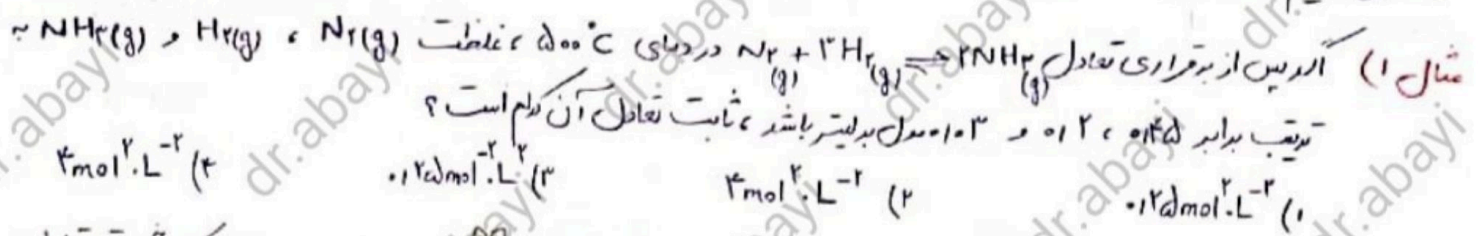 مثال ۱) اگر پس از برقراری تعادل N۲(g) + ۳H۲(g) ⇌ ۲NH۳(g) در دمای ۵۰۰°C ، غلظت N۲(g) ، H۲(g) و NH۳(g) به
ترتیب برابر ۰/۴۵ ، ۰/۲ و ۰/۰۳ مول بر لیتر باشد ، ثابت تعادل آن کدام است ؟
۱) ۰/۲۵mol².L⁻² ۲) ۴mol².L⁻² ۳) ۰/۲۵mol⁻².L² ۴) ۴mol².L⁻²
dr.abayi